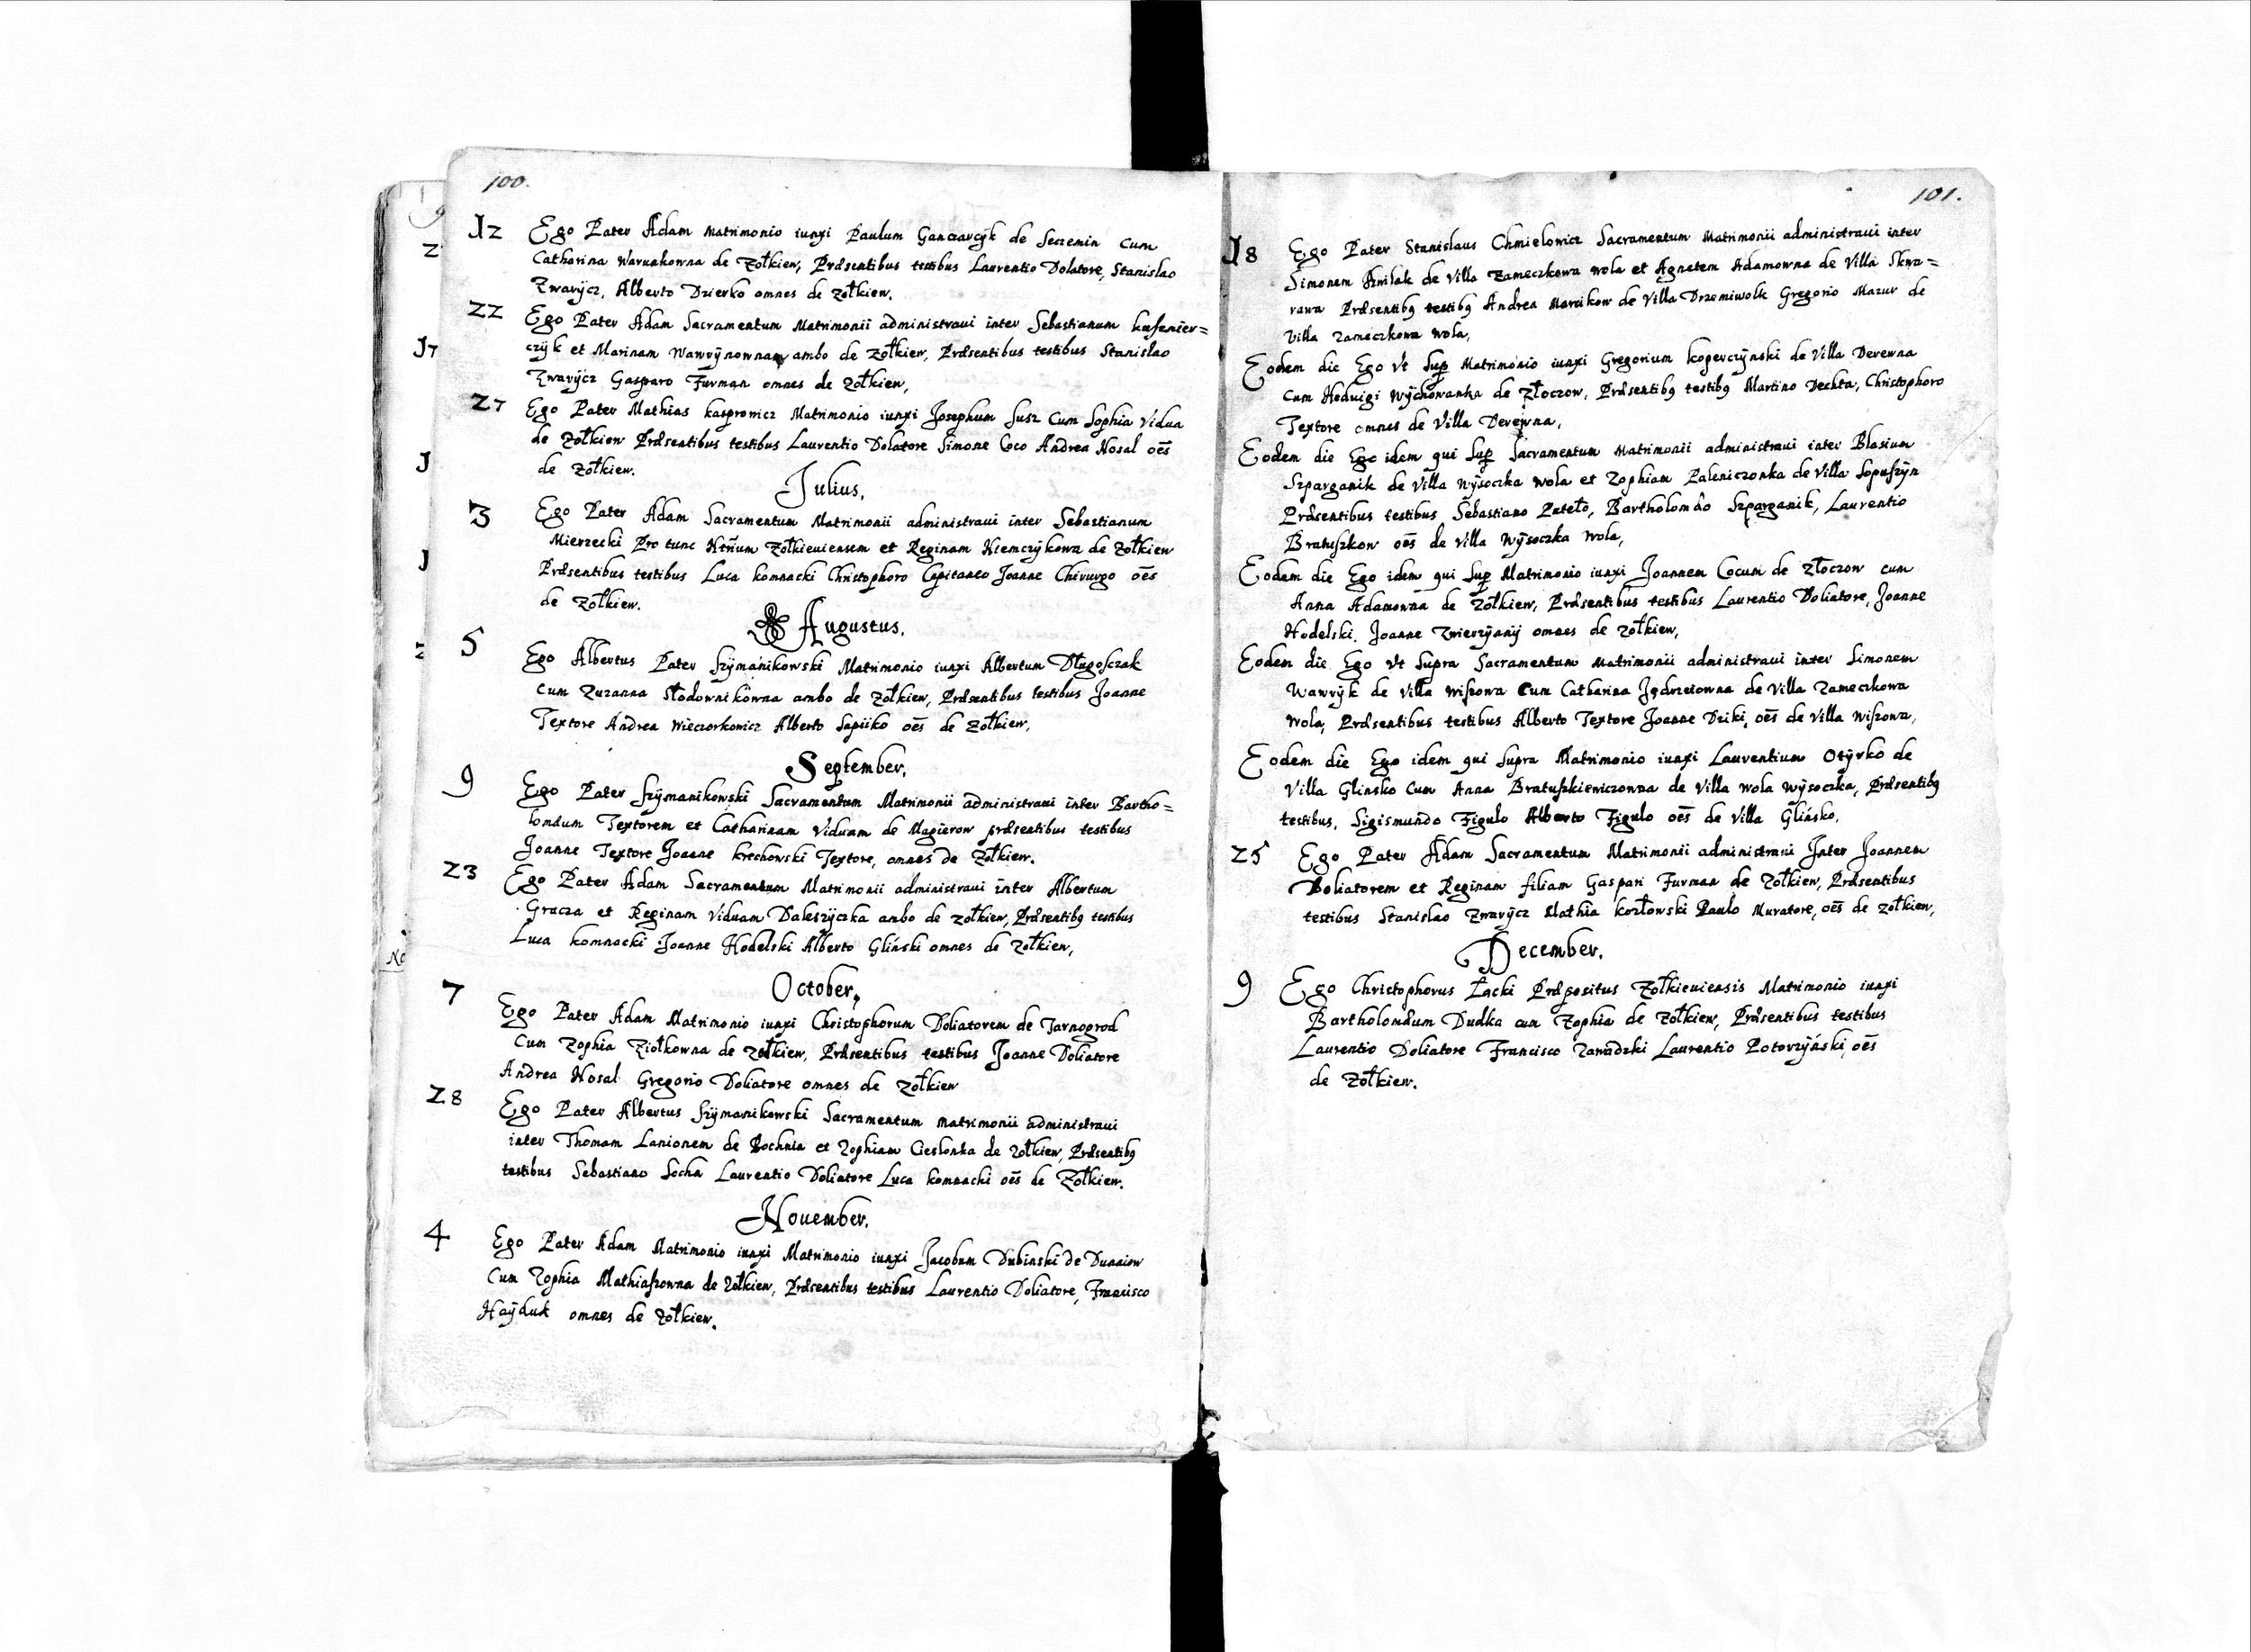 100.
12 Ego Pater Adam Matrimonio iunxi Paulum Ganczarcÿk de Seczemin Cum
Catharina Waruakowna de Zołkiew, Præsentibus testibus Laurentio Dolatore, Stanislao
Zwarÿcz, Alberto Dzierko omnes de Zołkiew.
22 Ego Pater Adam Sacramentum Matrimonii administraui inter Sebastianum kusznier=
czÿk et Marinam Wawrÿnownam ambo de Zołkiew, Præsentibus testibus Stanislao
Zwarÿcz Gasparo Furman omnes de Zołkiew,
27 Ego Pater Mathias kasprowicz Matrimonio iunxi Josephum Susz Cum Sophia Vidua
de Zołkiew Præsentibus testibus Laurentio Dolatore Simone Coco Andrea Nosal oēs
de Zołkiew.
Julius,
3 Ego Pater Adam Sacramentum Matrimonii administraui inter Sebastianum
Mierzecki Pro tunc Zołkieuiensem et Reginam Niemczÿkowa de Zołkiew
Præsentibus testibus Luca komnacki Christophoro Capitaneo Joanne Chirurgo oēs
de Zołkiew.
Augustus.
5 Ego Albertus Pater Szÿmanikowski Matrimonio iunxi Albertum Długosczak
Cum Zuzanna Słodownikówna ambo de Zołkiew, Præsentibus testibus Joanne
Textore Andrea Wieczorkowicz Alberto Sapiiko oēs de Zołkiew,
September,
9 Ego Pater Szÿmanikowski Sacramentum Matrimonii administraui inter Bartho=
lomæum Textorem et Catharinam Viduam de Magierow præsentibus testibus
Joanne Textore Joanne krechowski Textore, omnes de Zołkiew.
23 Ego Pater Adam Sacramentum Matrimonii administraui inter Albertum
Gracza et Reginam Viduam Daleszÿczka ambo de zołkiew, Præsentibꝯ testibus
Luca komnacki Joanne Hodelski Alberto Gliński omnes de Zołkiew,
October,
7 Ego Pater Adam Matrimonio iunxi Christophorum Doliatorem de Tarnogrod
Cum Zophia Ziołkowna de Zołkiew, Præsentibus testibus Joanne Doliatore
Andrea Nosal Gregorio Doliatore omnes de Zołkiew
28 Ego Pater Albertus Szÿmanikowski Sacramentum matrimonii administraui
inter Thomam Lanionem de Bochnia et Zophiam Cieslonka de Zołkiew, Præsentibꝯ
testibus Sebastiano Socha Laurentio Doliatore Luca komnacki oēs de Zołkiew.
Nouember.
4 Ego Pater Adam Matrimonio iunxi Matrimonio iunxi Jacobum Dubinski de Dunaiow
Cum Zophia Mathiaszowna de Zołkiew, Præsentibus testibus Laurentio Doliatore, Francisco
Haÿduk omnes de Zołkiew.
101.
18 Ego Pater Stanislaus Chmielowicz Sacramentum Matrimonii administraui inter
Simonem de Villa Zameczkowa wola et Agnetem Adamowna de Villa Skwa=
rawa Præsentibꝯ testibꝯ Andrea Marcikow de Villa Drzemiwolk Gregorio Mazur de
Villa Zameczkowa wola,
Eodem die Ego Vt Sup̱ Matrimonio iunxi Gregorium kogerczÿnski de Villa Derewna
Cum Hedvigi Wÿchowanka de Złoczow, Præsentibꝯ testibꝯ Martino Dechta, Christophoro
Textore omnes de Villa Derewna,
Eodem die Ego idem qui Sup̱ Sacramentum Matrimonii administraui inter Blasium
Szparganik de Villa Wÿsoczka Wola et Zophiam Paleniczonka de Villa Sopuszÿn
Præsentibus testibus Sebastiano Pateło, Bartholomæo Szparganik, Laurentio
Bratuszkow oēs de Villa Wÿsoczka Wola,
Eodem die Ego idem qui Sup̱ Matrimonio iunxi Joannem Cocum de Złoczow cum
Anna Adamowna de Zołkiew, Præsentibus testibus Laurentio Doliatore, Joanne
Hodelski, Joanne Zwierzÿnÿ omnes de Zołkiew,
Eodem die Ego Vt Supra Sacramentum Matrimonii administraui inter Simonem
Wawrÿk de Villa Wiszowa Cum Catharina Jędrzeiowna de Villa Zameczkowa
Wola, Præsentibus testibus Alberto Textore Joanne Dziki, oēs de Villa Wiszowa,
Eodem die Ego idem qui Supra Matrimonio iunxi Laurentium Otÿrko de
Villa Glinsko Cum Anna Bratuszkiewiczowna de Villa Wola Wÿsoczka, Præsentibꝯ
testibus, Sigismundo Figulo Alberto Figulo oēs de Villa Glińsko,
25 Ego Pater Adam Sacramentum Matrimonii administraui Inter Joannem
Doliatorem et Reginam filiam Gaspari Furman de Zołkiew, Præsentibus
testibus Stanislao Zwarÿcz Mathia kozłowski Paulo Muratore, oēs de Zołkiew,
December.
9 Ego Christophorus Łącki Præpositus Zołkieuiensis Matrimonio iunxi
Bartholomæum Dudka cum Zophia de Zołkiew, Præsentibus testibus
Laurentio Doliatore Francisco Zawadzki Laurentio Potorzÿński oēs
de Zołkiew.